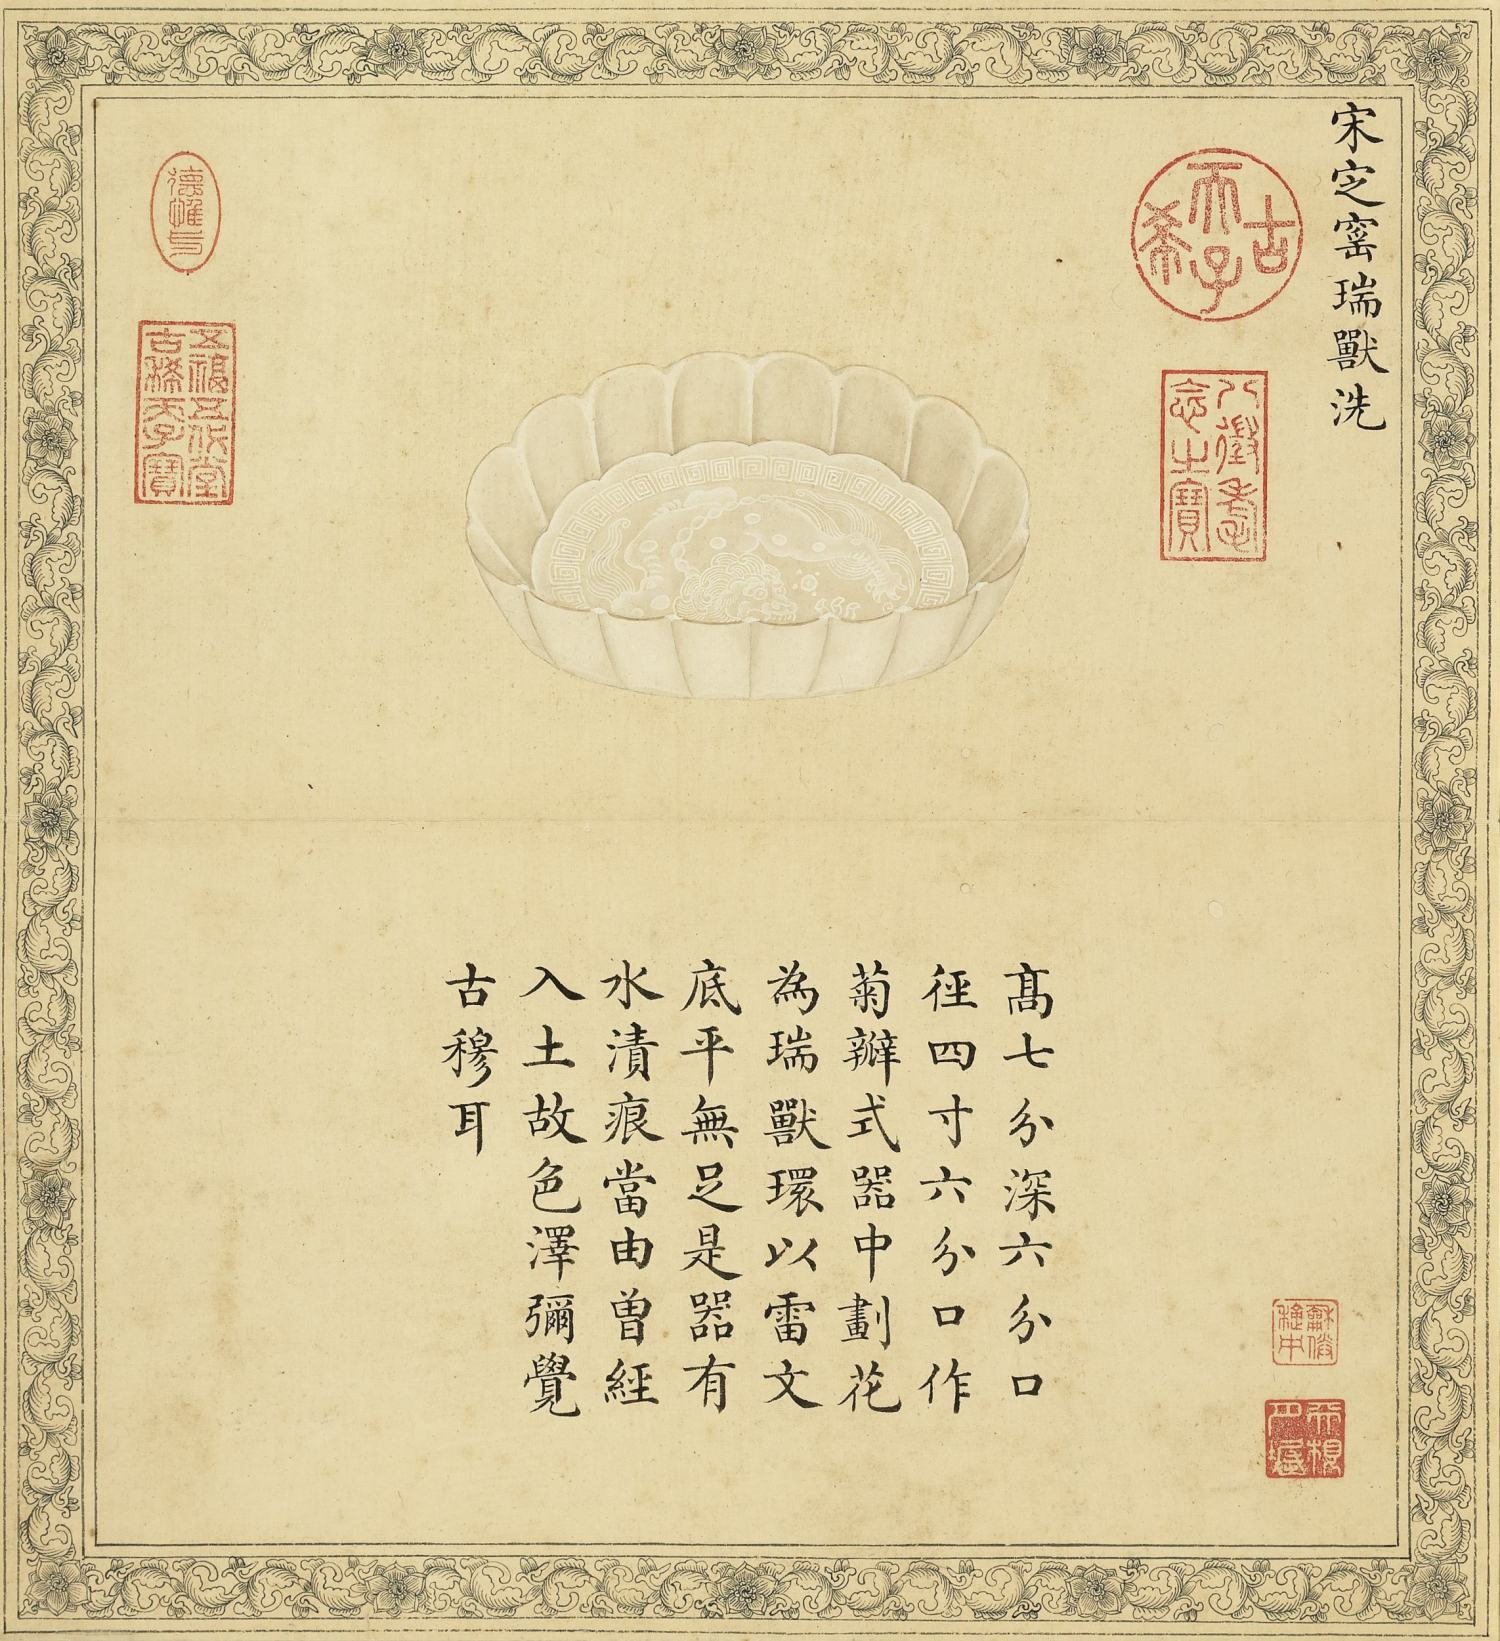 宋定窰瑞獸洗
古希天子
八徵耄念之寶
高七分深六分口
徑四寸六分口作
菊瓣式器中劃花
為瑞獸環以雷文
底平無足是器有
水漬痕當由曾經
入土故色澤彌覺
古穆耳
德惟馨
五福五代堂古稀天子寶